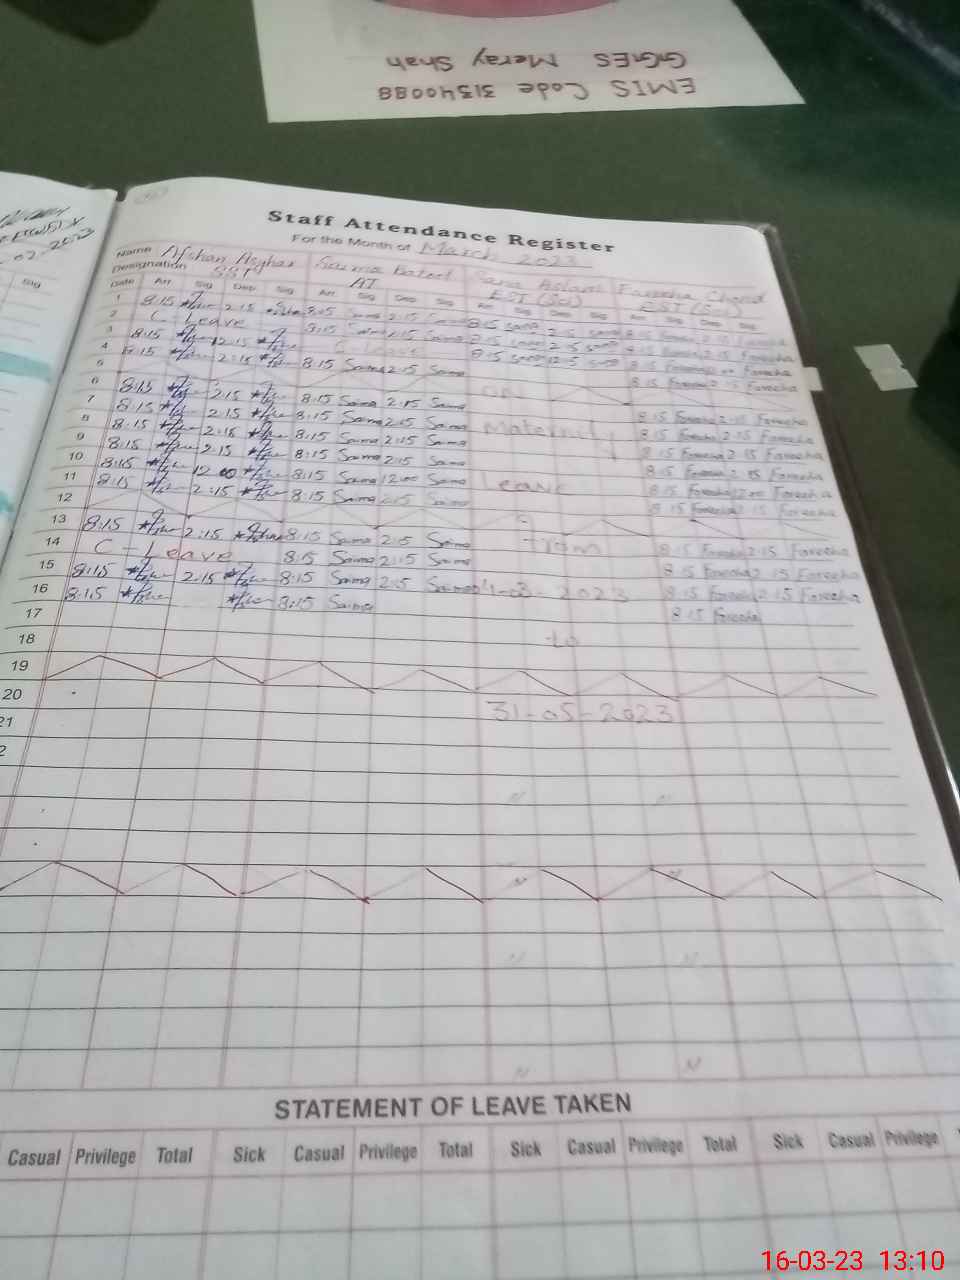 EMIS Code 31540088
GGES Meray Shah
Staff Attendance Register
For the Month of March 2023
Name Afshan Asghar Saima Batool Sana Aslam Fareeha
Designation SST AT EST (Sci) EST (Sci)
Date Arr Sig Dep Sig Arr Sig Dep Sig Arr Sig Dep Sig Arr Sig Dep Sig
1 8:15 2:15 8:15 Saima 2:15 Saima 8:15 Sana 2:15 Sana
2 C - Leave 8:15 Saima 2:15 Saima 8:15 Sana 2:15 Sana Fareeha
3 8:15 12:15 C Leave 8:15 Sana 12:15 Sana 8:15 Fareeha Fareeha
4 8:15 2:15 8:15 Saima 2:15 Saima 8:15 Fareeha 2:15 Fareeha
5
6 8:15 2:15 8:15 Saima 2:15 Saima on 8:15 Fareeha 2:15 Fareeha
7 8:15 2:15 8:15 Saima 2:15 Saima 8:15 Fareeha 2:15 Fareeha
8 8:15 2:15 8:15 Saima 2:15 Saima Maternity 8:15 Fareeha 2:15 Fareeha
9 8:15 2:15 8:15 Saima 2:15 Saima 8:15 Fareeha 2:15 Fareeha
10 8:15 12 00 8:15 Saima 12:00 Saima Leave 8:15 Fareeha 12:00 Fareeha
11 8:15 2:15 8:15 Saima 2:15 Saima 8:15 Fareeha 2:15 Fareeha
12
13 8:15 2:15 8:15 Saima 2:15 Saima From 8:15 Fareeha 2:15 Fareeha
14 C - Leave 8:15 Saima 2:15 Saima 8:15 Fareeha 2:15 Fareeha
15 8:15 2:15 8:15 Saima 2:15 Saima 4-03-2023 8:15 Fareeha 2:15 Fareeha
16 8:15 8:15 Saima 8:15 Fareeha
17
18 to
19
20 31-05-2023
21
2
STATEMENT OF LEAVE TAKEN
Casual Privilege Total Sick Casual Privilege Total Sick Casual Privilege Total Sick Casual Privilege
16-03-23 13:10